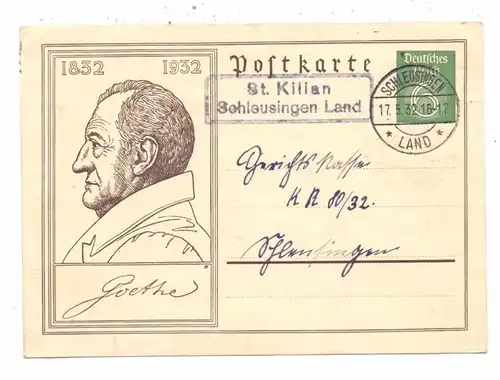 1832 1932
Postkarte
Deutsches
Reich
St. Kilian
Schleusingen Land
SCHLEUSINGEN
17.5.32.16-17
* LAND *
Gerichtskasse
K R 80/32.
Schleusingen
Goethe